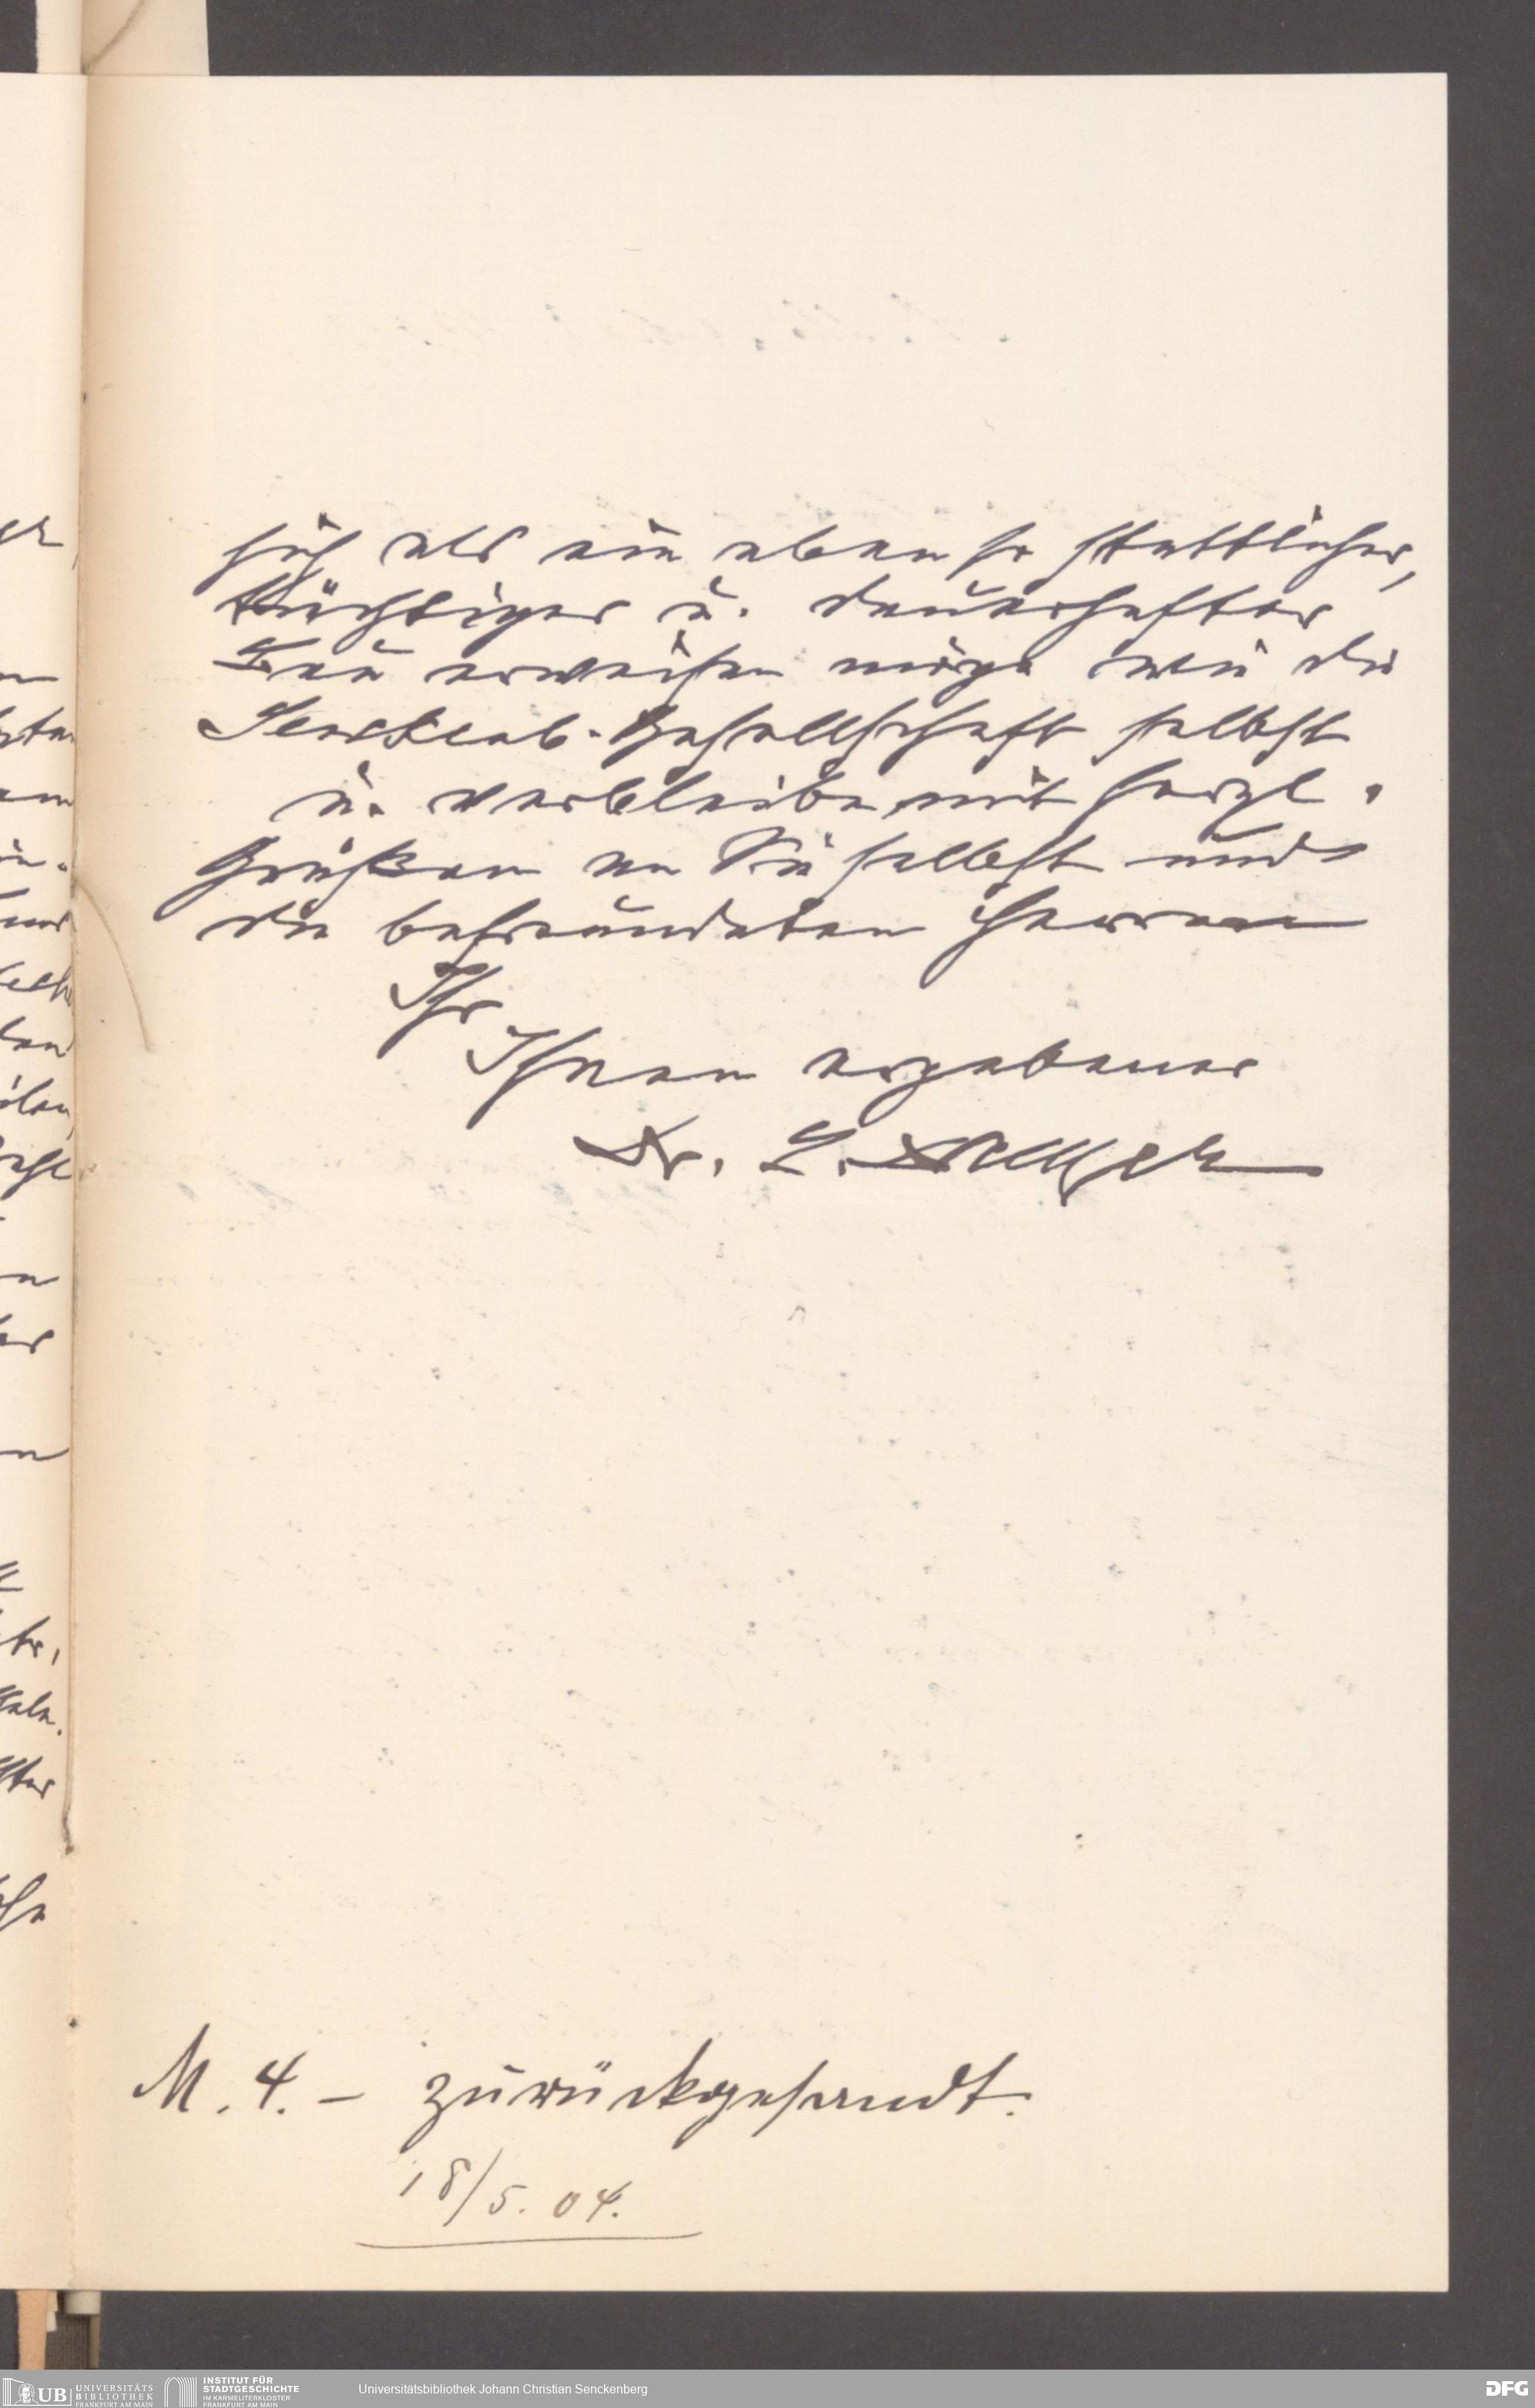 sich als ein ebenso stattlicher,
tüchtiger u. dauerhafter
Bau erweisen möge wie die
Senckenb. Gesellschaft selbst
u. verbleibe mit herzl.
Grüßen an Sie selbst und
die befreundeten Herren
Ihr
Ihnen ergebener
Dr. L.
M. 4. – zurückgesandt.
18/5. 04.
UB UNIVERSITÄTS
BIBLIOTHEK
FRANKFURT AM MAIN
INSTITUT FÜR
STADTGESCHICHTE
IM KARMELITERKLOSTER
FRANKFURT AM MAIN
Universitätsbibliothek Johann Christian Senckenberg
DFG